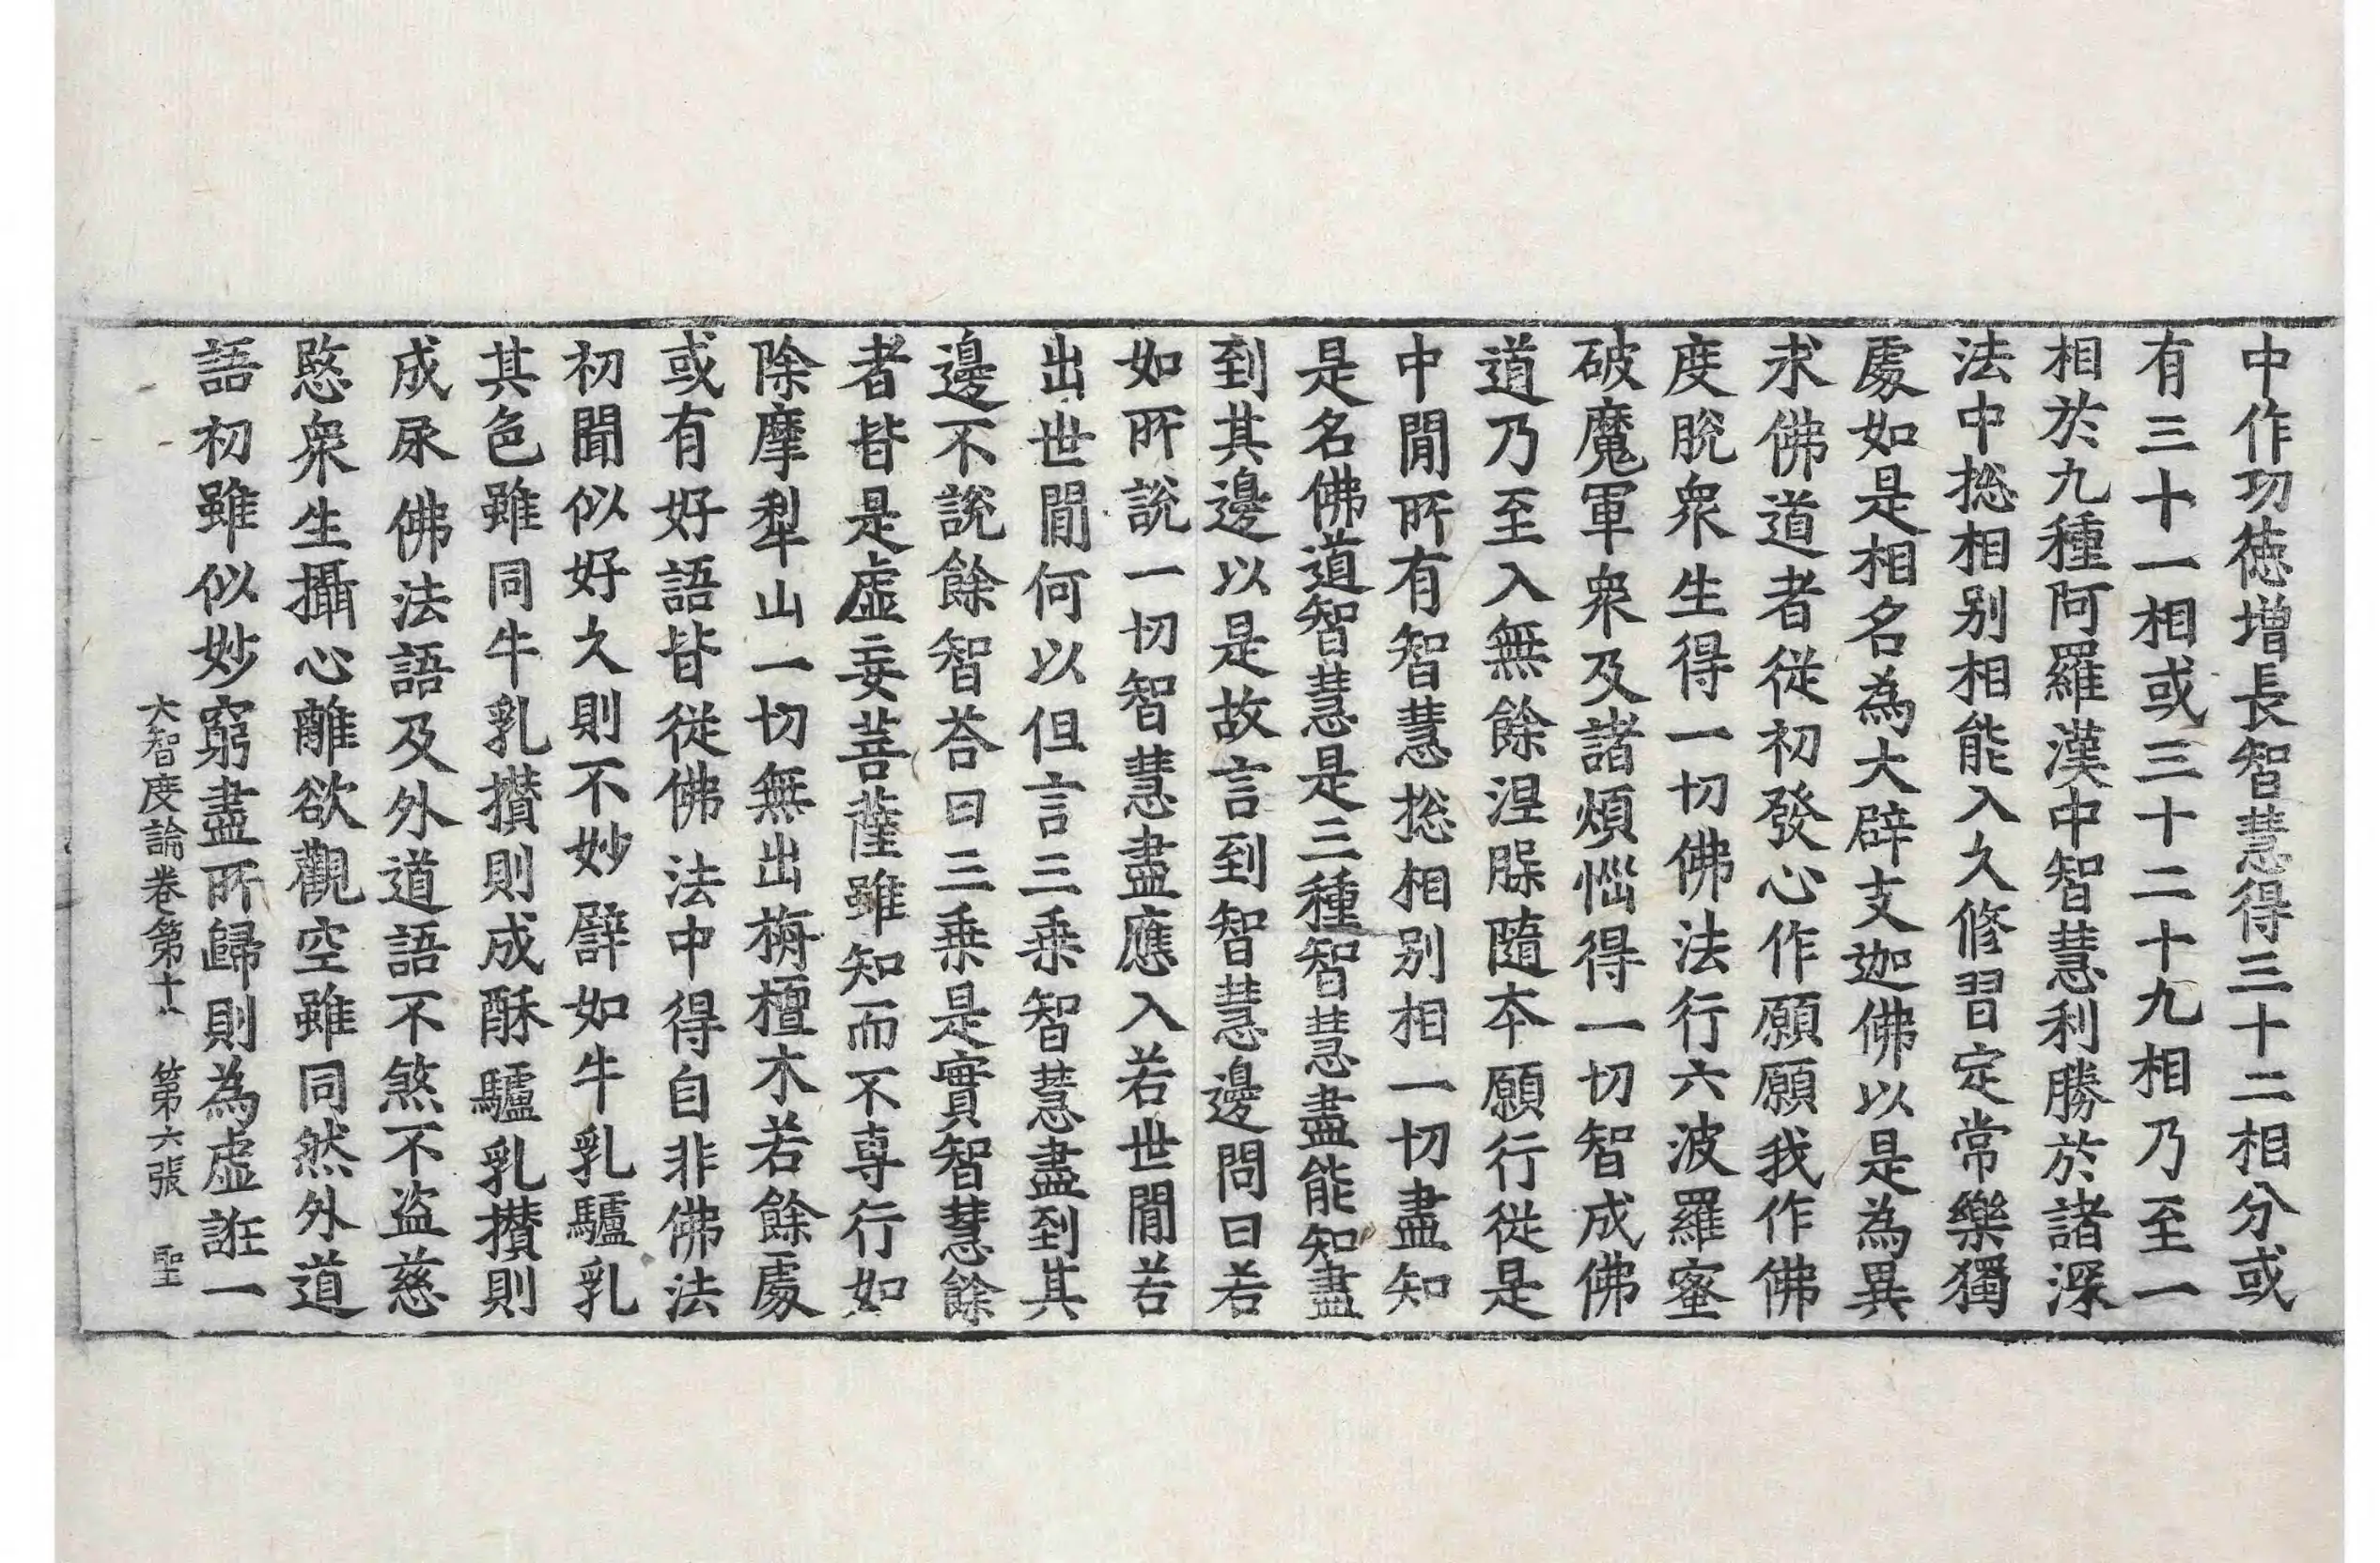 中作功徳增長智慧得三十二相分或
有三十一相或三十二十九相乃至一
相於九種阿羅漢中智慧利勝於諸深
法中捴相别相能入久修習定常樂獨
處如是相名為大辟支迦佛以是為異
求佛道者從初發心作願願我作佛
度脫衆生得一切佛法行六波羅蜜
破魔軍衆及諸煩惱得一切智成佛
道乃至入無餘涅槃隨夲願行從是
中閒所有智慧捴相别相一切盡知
是名佛道智慧是三種智慧盡能知盡
到其邊以是故言到智慧邊問曰若
如所說一切智慧盡應入若世閒若
出世閒何以但言三乗智慧盡到其
邊不說餘智荅曰三乗是實智慧餘
者皆是虛妄菩薩雖知而不專行如
除摩犁山一切無出栴檀木若餘處
或有好語皆從佛法中得自非佛法
初聞似好久則不妙譬如牛乳驢乳
其色雖同牛乳攅則成酥驢乳攅則
成尿佛法語及外道語不煞不盜慈
愍衆生攝心離欲觀空雖同然外道
語初雖似妙窮盡所歸則為虛誑一
大智度論卷第十八 第六張 聖